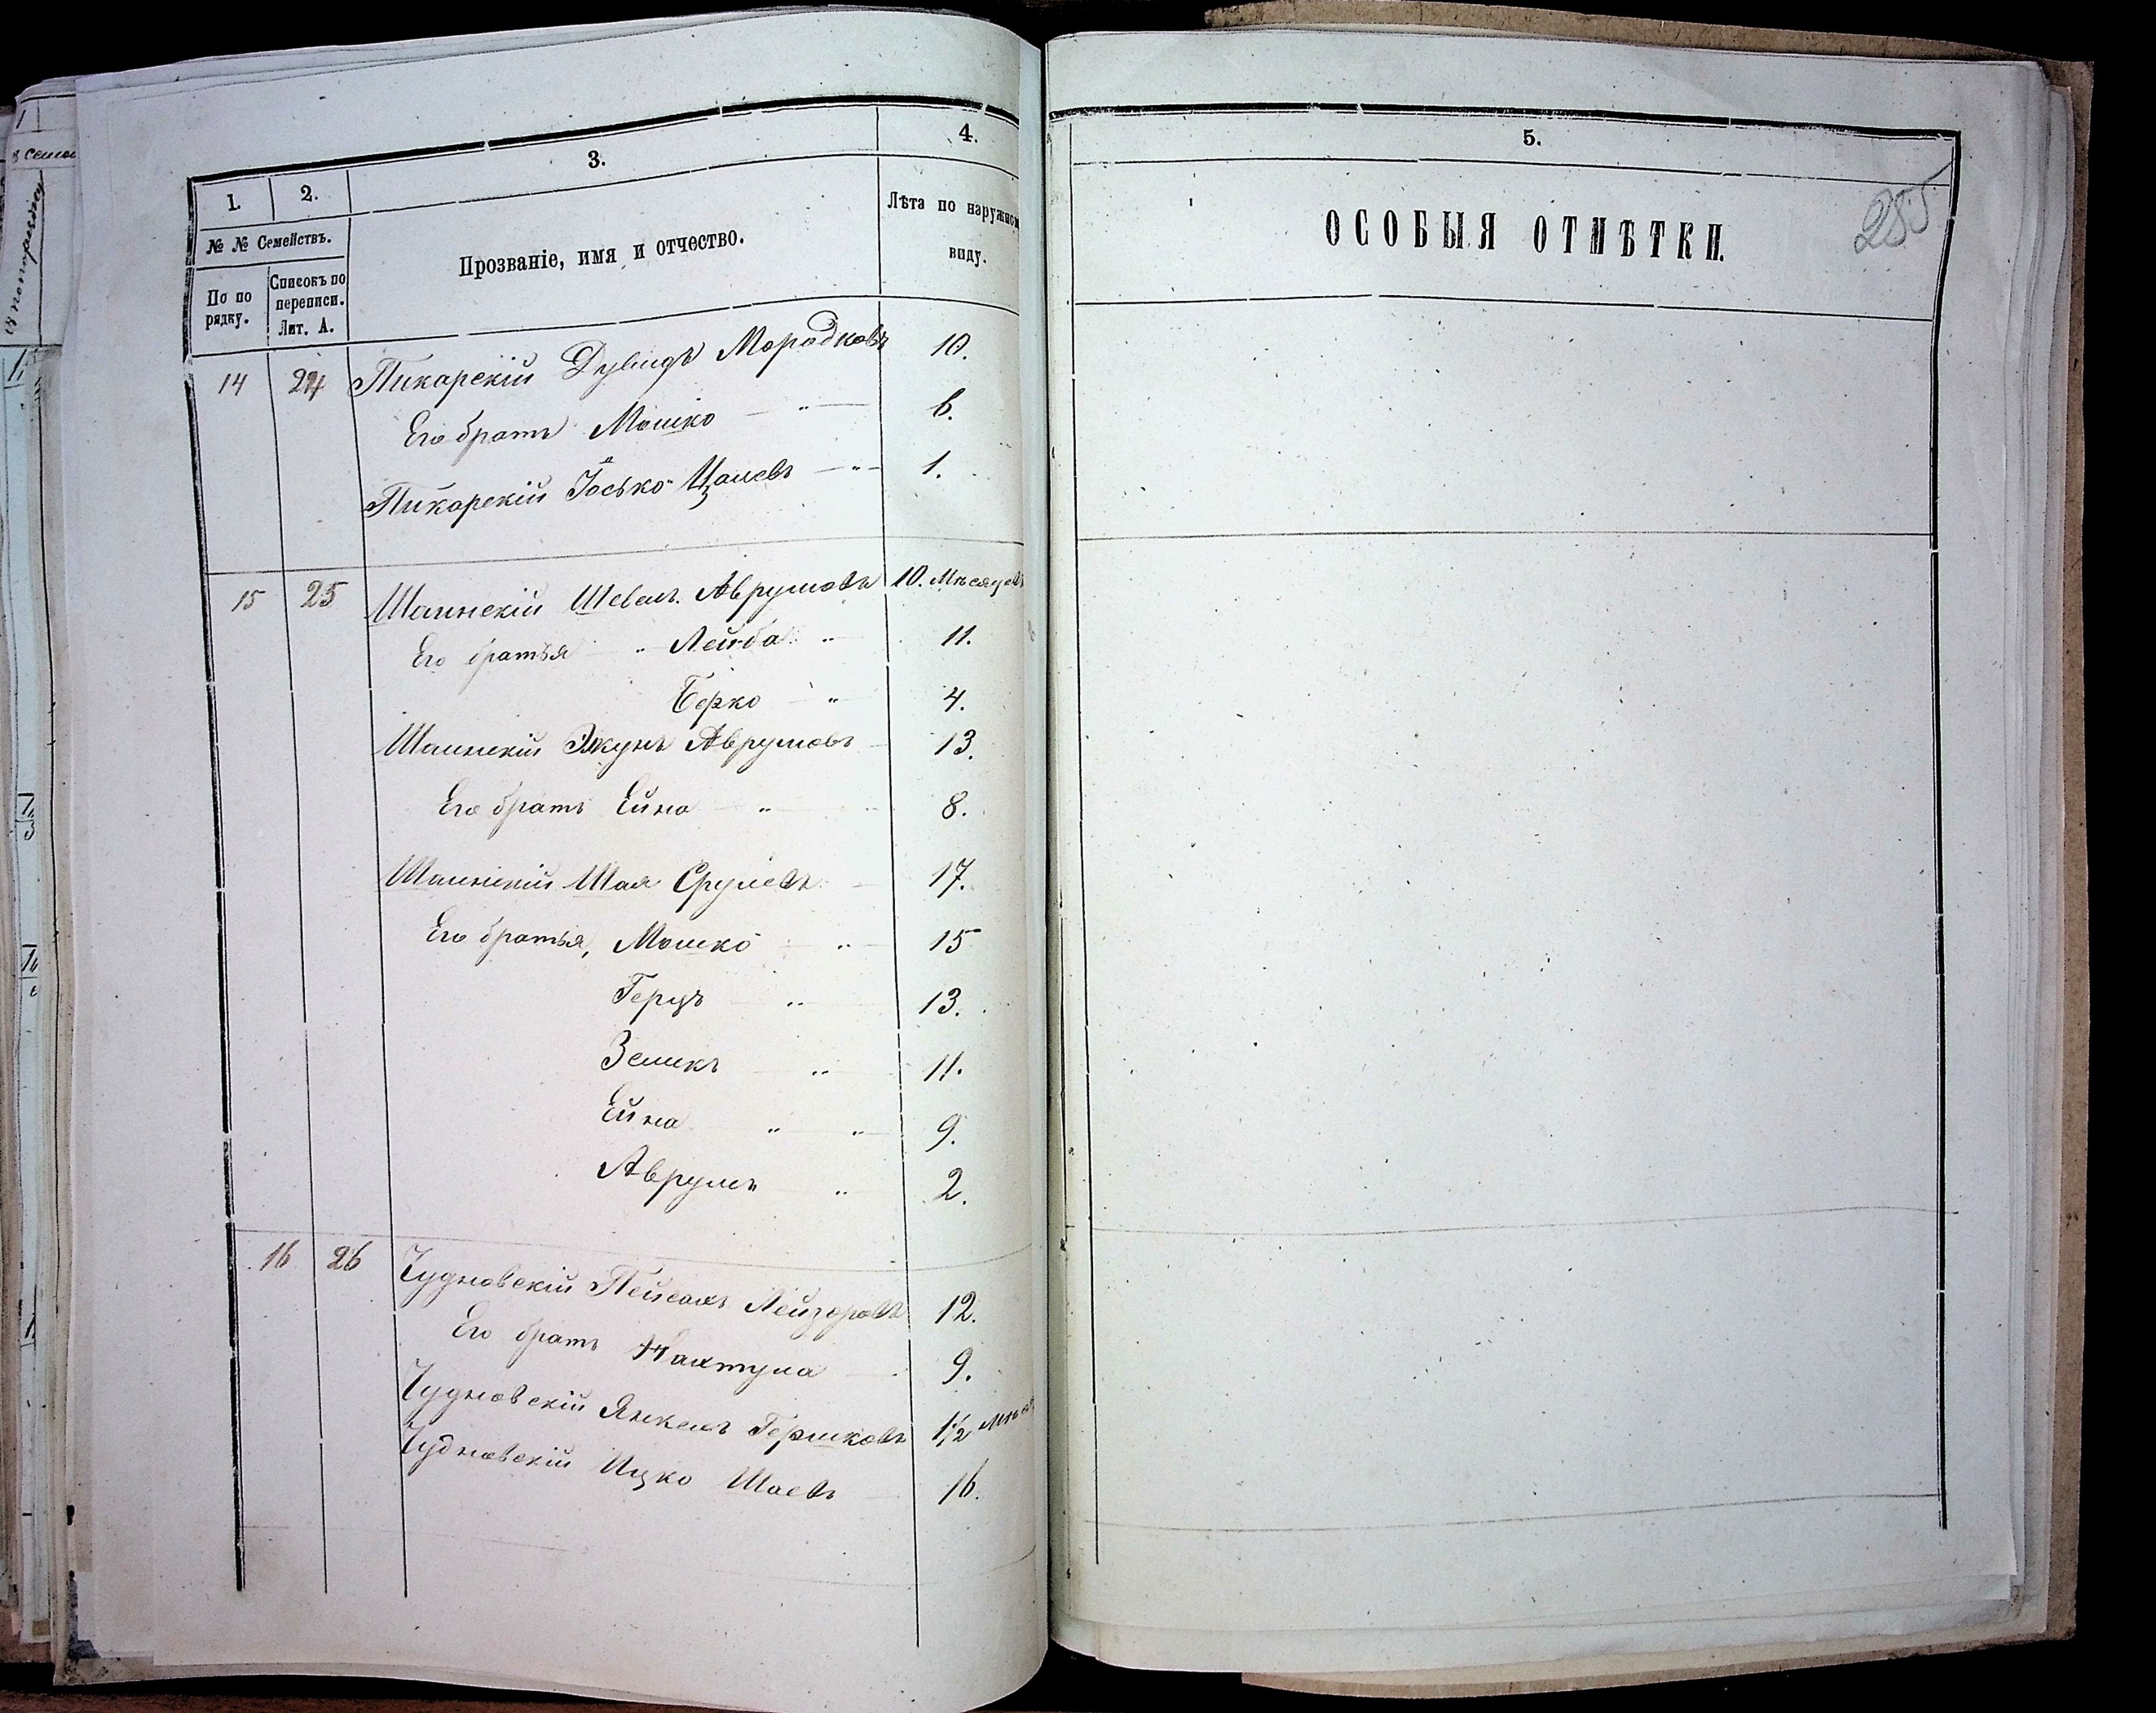 1. 2. 3. 4.
№ № Семействъ. Прозваніе, имя и отчество. Лѣта по наружном
виду.
По по рядку. Списокъ по переписи. Лит. А.
14 24 Пикарскій Дувидъ Мородковъ 10.
Его братъ Мошко — " — 6.
Пикарскій Іосько Цалевъ — " — 1.
15 25 Шаинскій Шевель Аврумовъ 10. Мѣсяцевъ
Его братья " Лейба " 11.
Берко — " 4.
Шаинскій Янкунъ Аврумовъ 13.
Его братъ Ейна — " 8.
Шаинскій Шая Срулевъ 17.
Его братья, Мошко — " 15
Герцъ — " 13.
Зеликъ — " 11.
Ейна " " 9.
Аврумъ " 2.
16 26 Чудновскій Пейсахъ Лейзоровъ 12.
Его братъ Нахтула — 9.
Чудновскій Янкель Гершковъ 1½
Чудновскій Ицко Шаевъ — 16.
5.
ОСОБЫЯ ОТМѢТКИ.
285